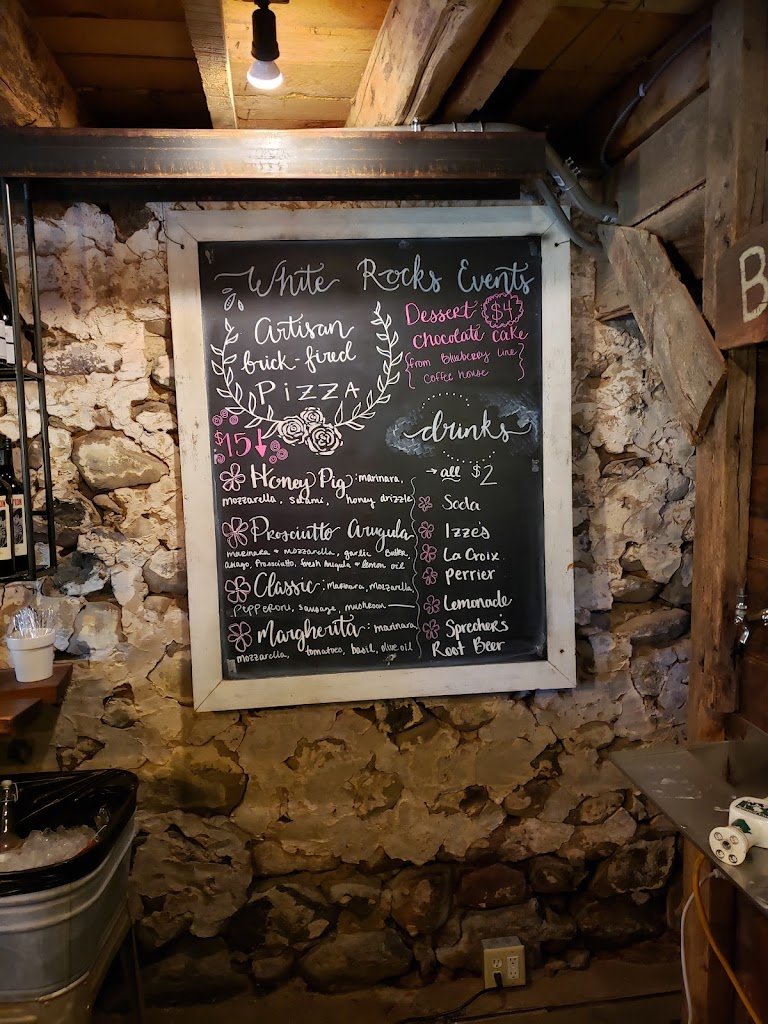 White Rocks Events
Artisan
brick-fired
PIZZA
$15↓
Honey Pig: marinara,
mozzarella, salami, honey drizzle
Prosciutto Arugula
marinara + mozzarella, garlic butter,
asiago, Prosciutto, fresh Arugula & lemon oil
Classic: marinara, mozzarella,
pepperoni, sausage, mushroom
Margherita: marinara,
mozzarella, tomatoes, basil, olive oil
Dessert: $4
chocolate cake
{from Blueberry Line
Coffee house}
drinks
→ all $2
Soda
Izze's
La Croix
Perrier
Lemonade
Sprecher's
Root Beer
B